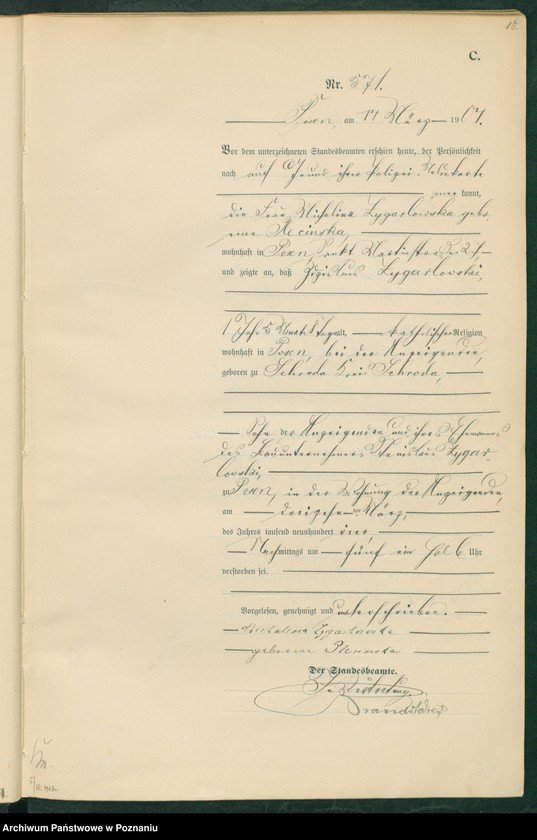 18.
C.
Nr. 571.
Posen, am 14 März 1904.
Vor dem unterzeichneten Standesbeamten erschien heute, der Persönlichkeit
nach auf Grund ihrer Polizei-Meldekarte
kannt,
die Frau Michalina Zygarlowska gebo
rene
wohnhaft in Posen, Sankt Martinstraße
und zeigte an, daß Zygarlowski,
1 Jahr 5 Monate 8 Tage alt, katholischer Religion,
wohnhaft in Posen, bei der Anzeigenden,
geboren zu Schroda Kreis Schroda,
Sohn der Anzeigenden und ihres Ehemannes
des Bauunternehmers Stanislaus Zygar
lowski,
zu Posen, in der Wohnung der Anzeigenden,
am dreizehnten März,
des Jahres tausend neunhundert vier,
Nachmittags um fünf ein halb Uhr
verstorben sei.
Vorgelesen, genehmigt und unterschrieben.
Michalina Zygarlowska
geborene
Der Standesbeamte.
In Vertretung.
Archiwum Państwowe w Poznaniu